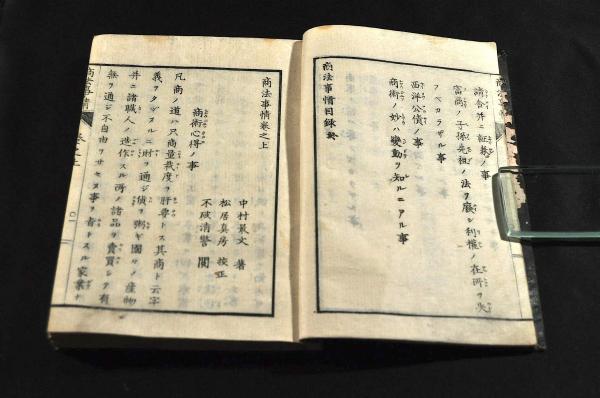 并ニ証券ノ事
富商ノ子孫先祖ノ法ヲ廢シ利權ノ在所ヲ失
フベカラザル事
西洋公債ノ事
商術ノ妙ハ變動ヲ知ルニアル事
商法事情目録終
商法事情卷之上
中村 文 著
松居真房 校正
不破清警 閲
商術心得ノ事
凡商ノ道ハ只商量裁度ヲ肝専トス其商ト云字
義ヲタヾスルニ財ヲ通ジ貨ヲ粥ギ國々ノ産物
并ニ諸職人ノ造作スル所ノ諸品ヲ賣買シテ有
無ヲ通ジ不自由ヲサセヌ事ヲ旨トスル家業ナ
商法事情